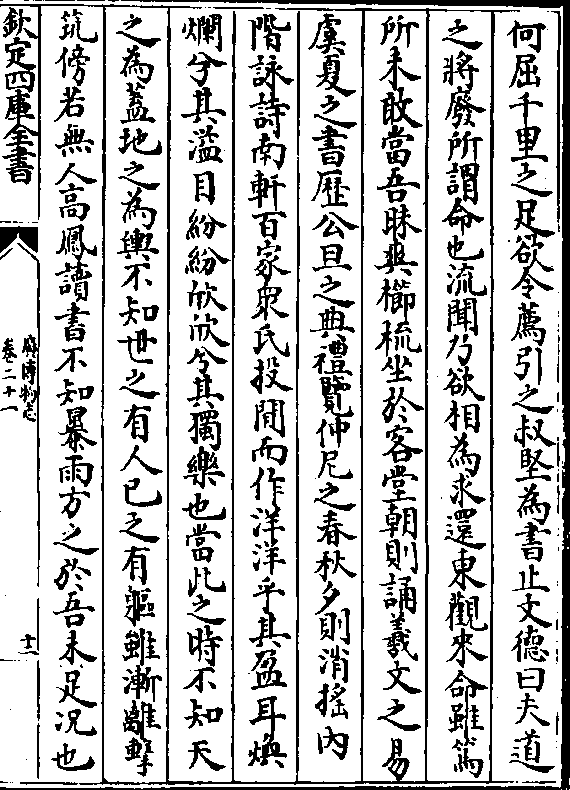 何屈千里之足欲令薦引之叔堅為書止文德曰夫道
之將廢所謂命也流聞乃欲相為求還東觀來命雖篤
所未敢當吾昧爽櫛梳坐於客堂朝則誦羲文之易
虞夏之書歴公旦之典禮覽仲尼之春秋夕則消摇内
階詠詩南軒百家衆氏投閒而作洋洋乎其盈耳煥
爛兮其溢目紛紛欣欣兮其獨樂也當此之時不知天
之為蓋地之為輿不知世之有人已之有軀雖漸離擊
筑傍若無人高鳳讀書不知暴雨方之於吾未足况也
欽定四庫全書
廣博物志
卷二十一
十二